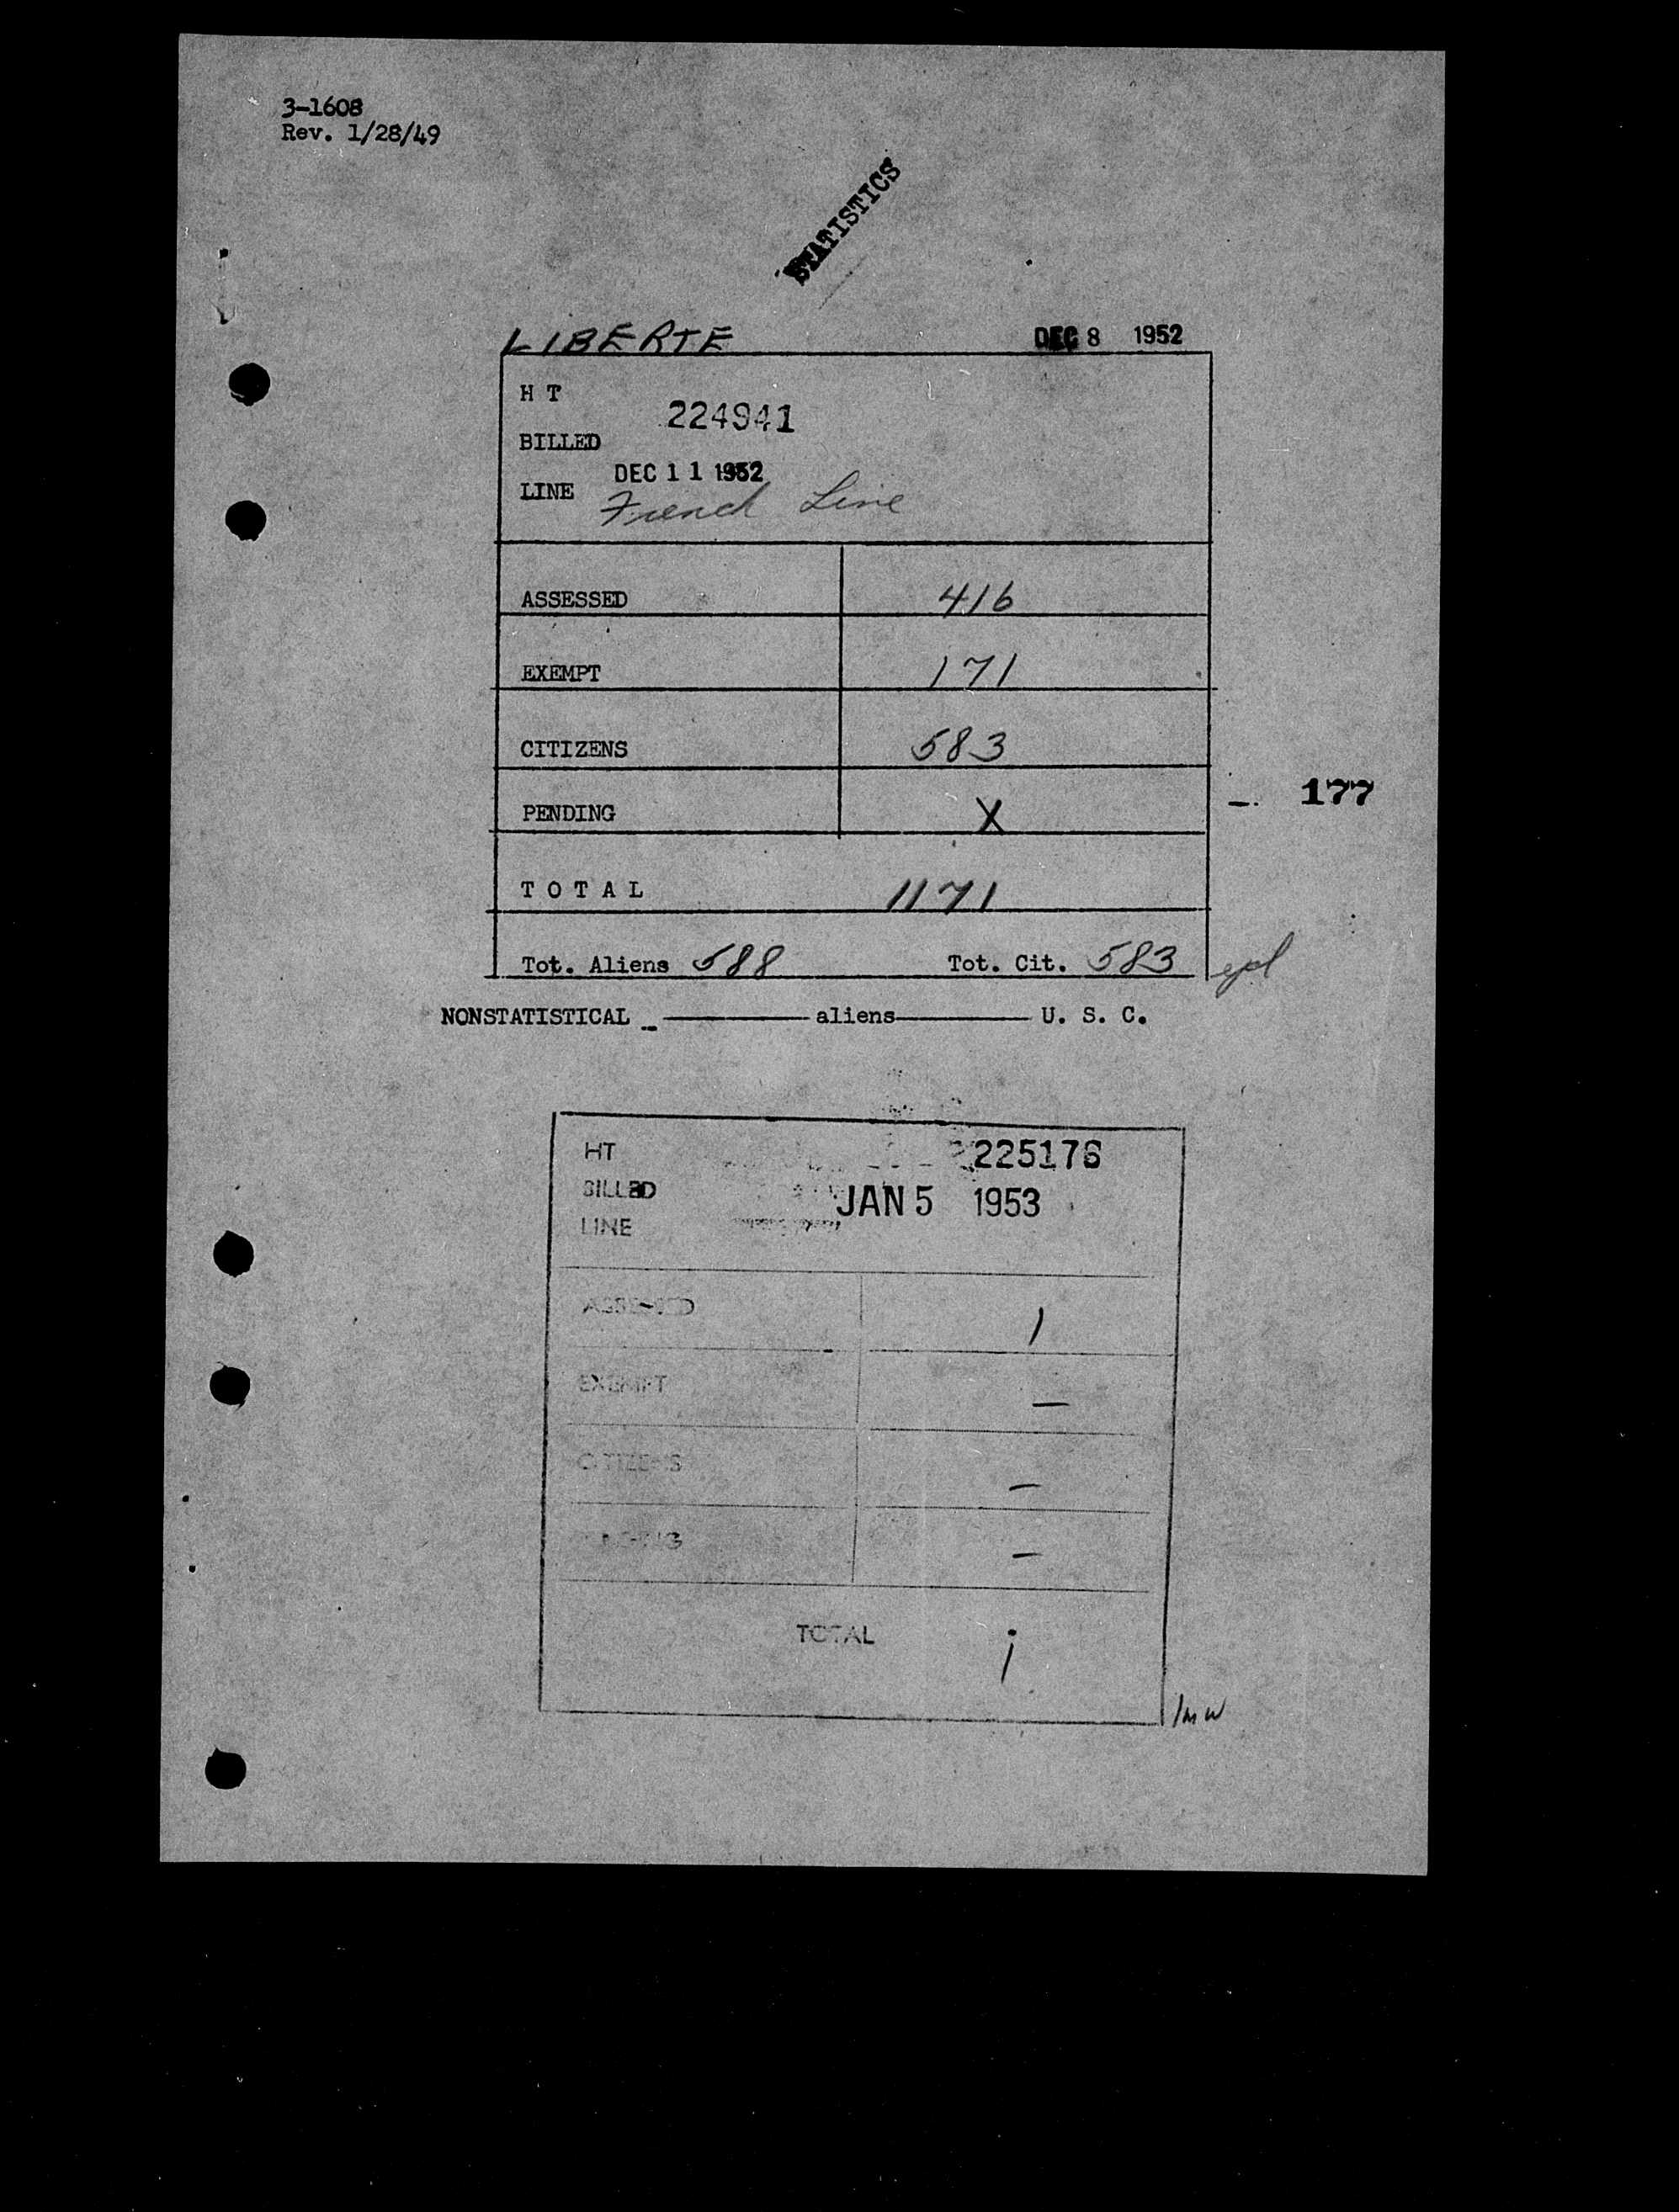 3-1608
Rev. 1/28/49
STATISTICS
LIBERTE DEC 8 1952
H T
224941
BILLED
DEC 11 1952
LINE French Line
ASSESSED 416
EXEMPT 171
CITIZENS 583
PENDING X
- 177
TOTAL 1171
Tot. Aliens 588 Tot. Cit. 583
NONSTATISTICAL _ ——— aliens ——— U. S. C.
HT 225176
BILLED JAN 5 1953
LINE
ASSESSED 1
EXEMPT —
CITIZENS —
PENDING —
TOTAL 1